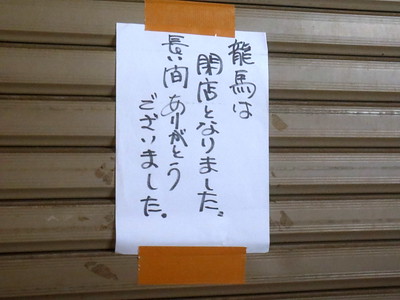 龍馬は
閉店となりました。
長い間ありがとう
ございました。